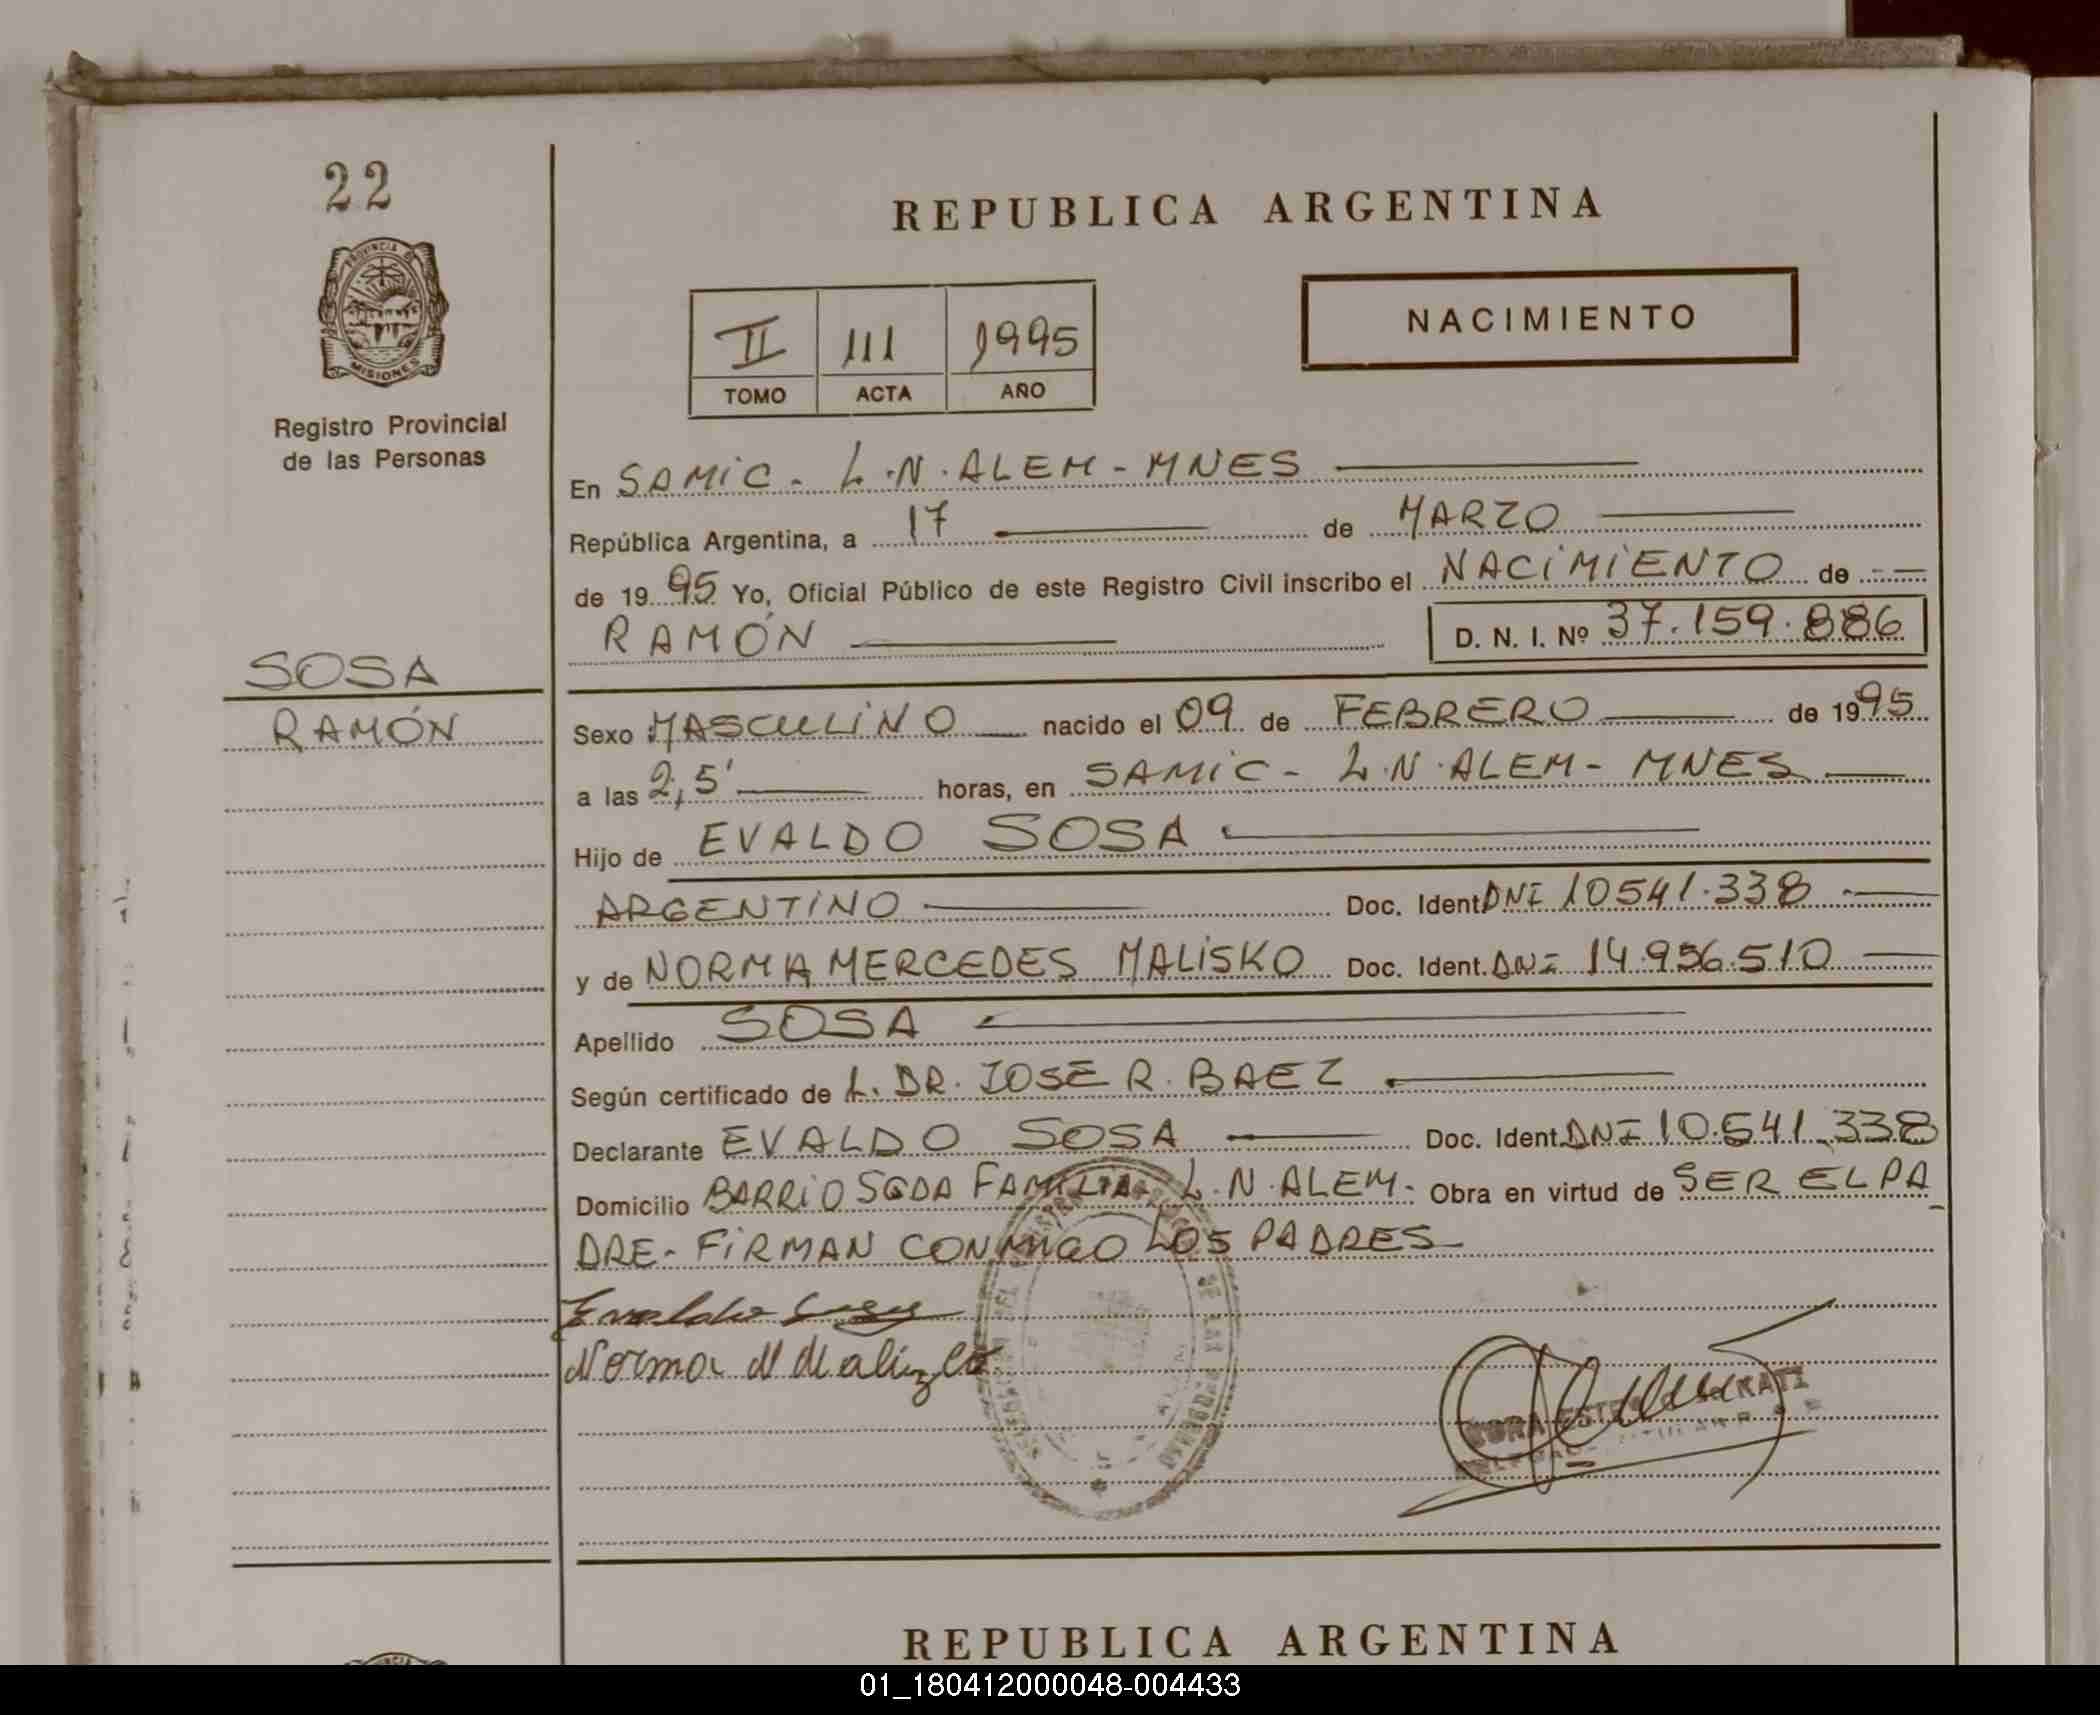 22
PROVINCIA DE
MISIONES
Registro Provincial
de las Personas
REPUBLICA ARGENTINA
II 111 1995
TOMO ACTA AÑO
NACIMIENTO
En SAMIC - L.N. ALEM - MNES
República Argentina, a 17 de MARZO
de 1995 Yo, Oficial Público de este Registro Civil inscribo el NACIMIENTO de
RAMÓN D. N. I. Nº 37.159.886
SOSA
RAMÓN
Sexo MASCULINO nacido el 09 de FEBRERO de 1995
a las 2,5' horas, en SAMIC - L.N. ALEM - MNES
Hijo de EVALDO SOSA
ARGENTINO Doc. Ident. DNI 10541.338
y de NORMA MERCEDES MALISKO Doc. Ident. DNI 14.956.510
Apellido SOSA
Según certificado de L. DR. JOSE R. BAEZ
Declarante EVALDO SOSA Doc. Ident. DNI 10.541.338
Domicilio BARRIO SGDA FAMILIA - L.N. ALEM. Obra en virtud de SER EL PA
DRE - FIRMAN CONMIGO LOS PADRES
Evaldo Sosa
Norma M Malizko
REPUBLICA ARGENTINA
01_180412000048-004433